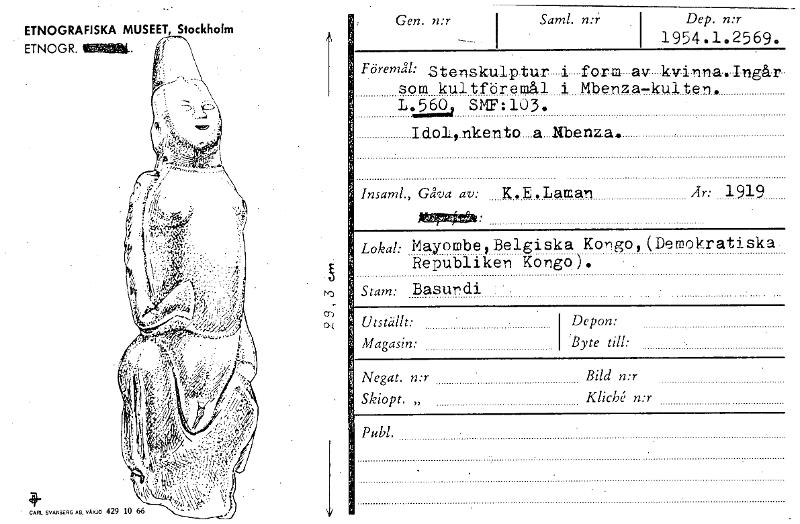 ETNOGRAFISKA MUSEET, Stockholm
ETNOGR.
Gen. n:r
Saml. n:r
Dep. n:r
1954.1.2569.
Föremål: Stenskulptur i form av kvinna.Ingår
som kultföremål i Mbenza-kulten.
L.560, SMF:103.
Idol,nkento a Mbenza.
Insaml., Gåva av: K.E.Laman År: 1919
Lokal: Mayombe,Belgiska Kongo,(Demokratiska
Republiken Kongo).
Stam: Basundi
Utställt:
Depon:
Magasin:
Byte till:
Negat. n:r
Bild n:r
Skiopt. „
Kliché n:r
Publ.
29,3 cm
CARL SVANBERG AB, VÄXJÖ 429 10 66